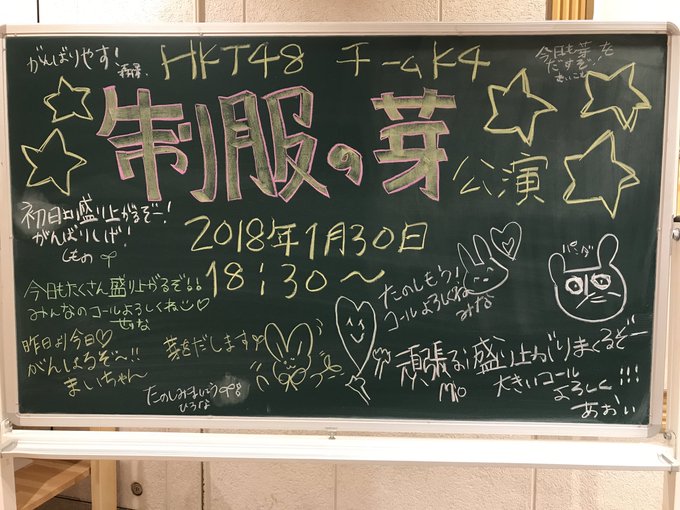 がんばりやす!
HKT48 チームK4
今日も芽を
だすぞ!
制服の芽
公演
初日口盛り上がるぞー!
がんばりしげ!
しの
2018年1月30日
18:30〜
今日もたくさん盛り上がるぞ!!
みんなのコールよろしくね♡
せな
たのしもう!
コールよろしくね
みな
パンダ
昨日より今日♡
がんばるぞ〜!!
まいちゃん
芽をだします
たのしみましょう
ひろな
頑張るぞ盛り上がりまくるぞー
Mio
大きいコール
よろしく!!!
あおい